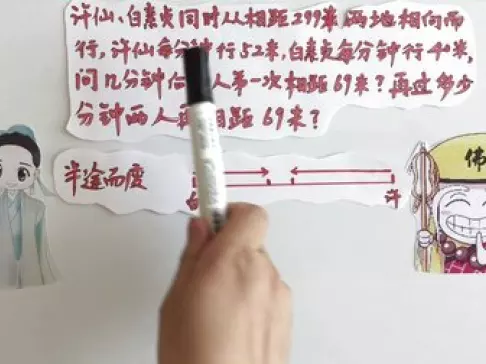 许仙、白素贞同时从相距299米两地相向而
行,许仙每分钟行52米,白素贞每分钟行40米,
问几分钟 人第一次相距69米?再过多少
分钟两人 相距69米?
半途而废
许
佛